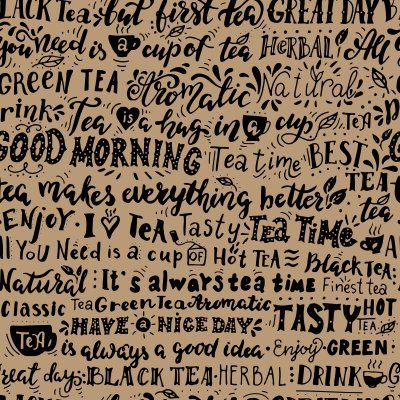 BLACK Tea but first tea GREAT DAY B
you need is a cup of tea HERBAL All
GREEN TEA Aromatic Natural
Drink Tea is a hug in a cup TEA
GOOD MORNING Tea time BEST
tea makes everything better! TEA
tea
ENJOY I TEA Tasty TEA TIME
All You Need is a cup OF HOT TEA BLACK TEA
Natural It's always tea time Finest tea
Classic Tea Green Tea Aromatic TASTY HOT TEA
HAVE a NICE DAY
TEA is always a good idea. Enjoy GREEN
Great day BLACK TEA HERBAL DRINK